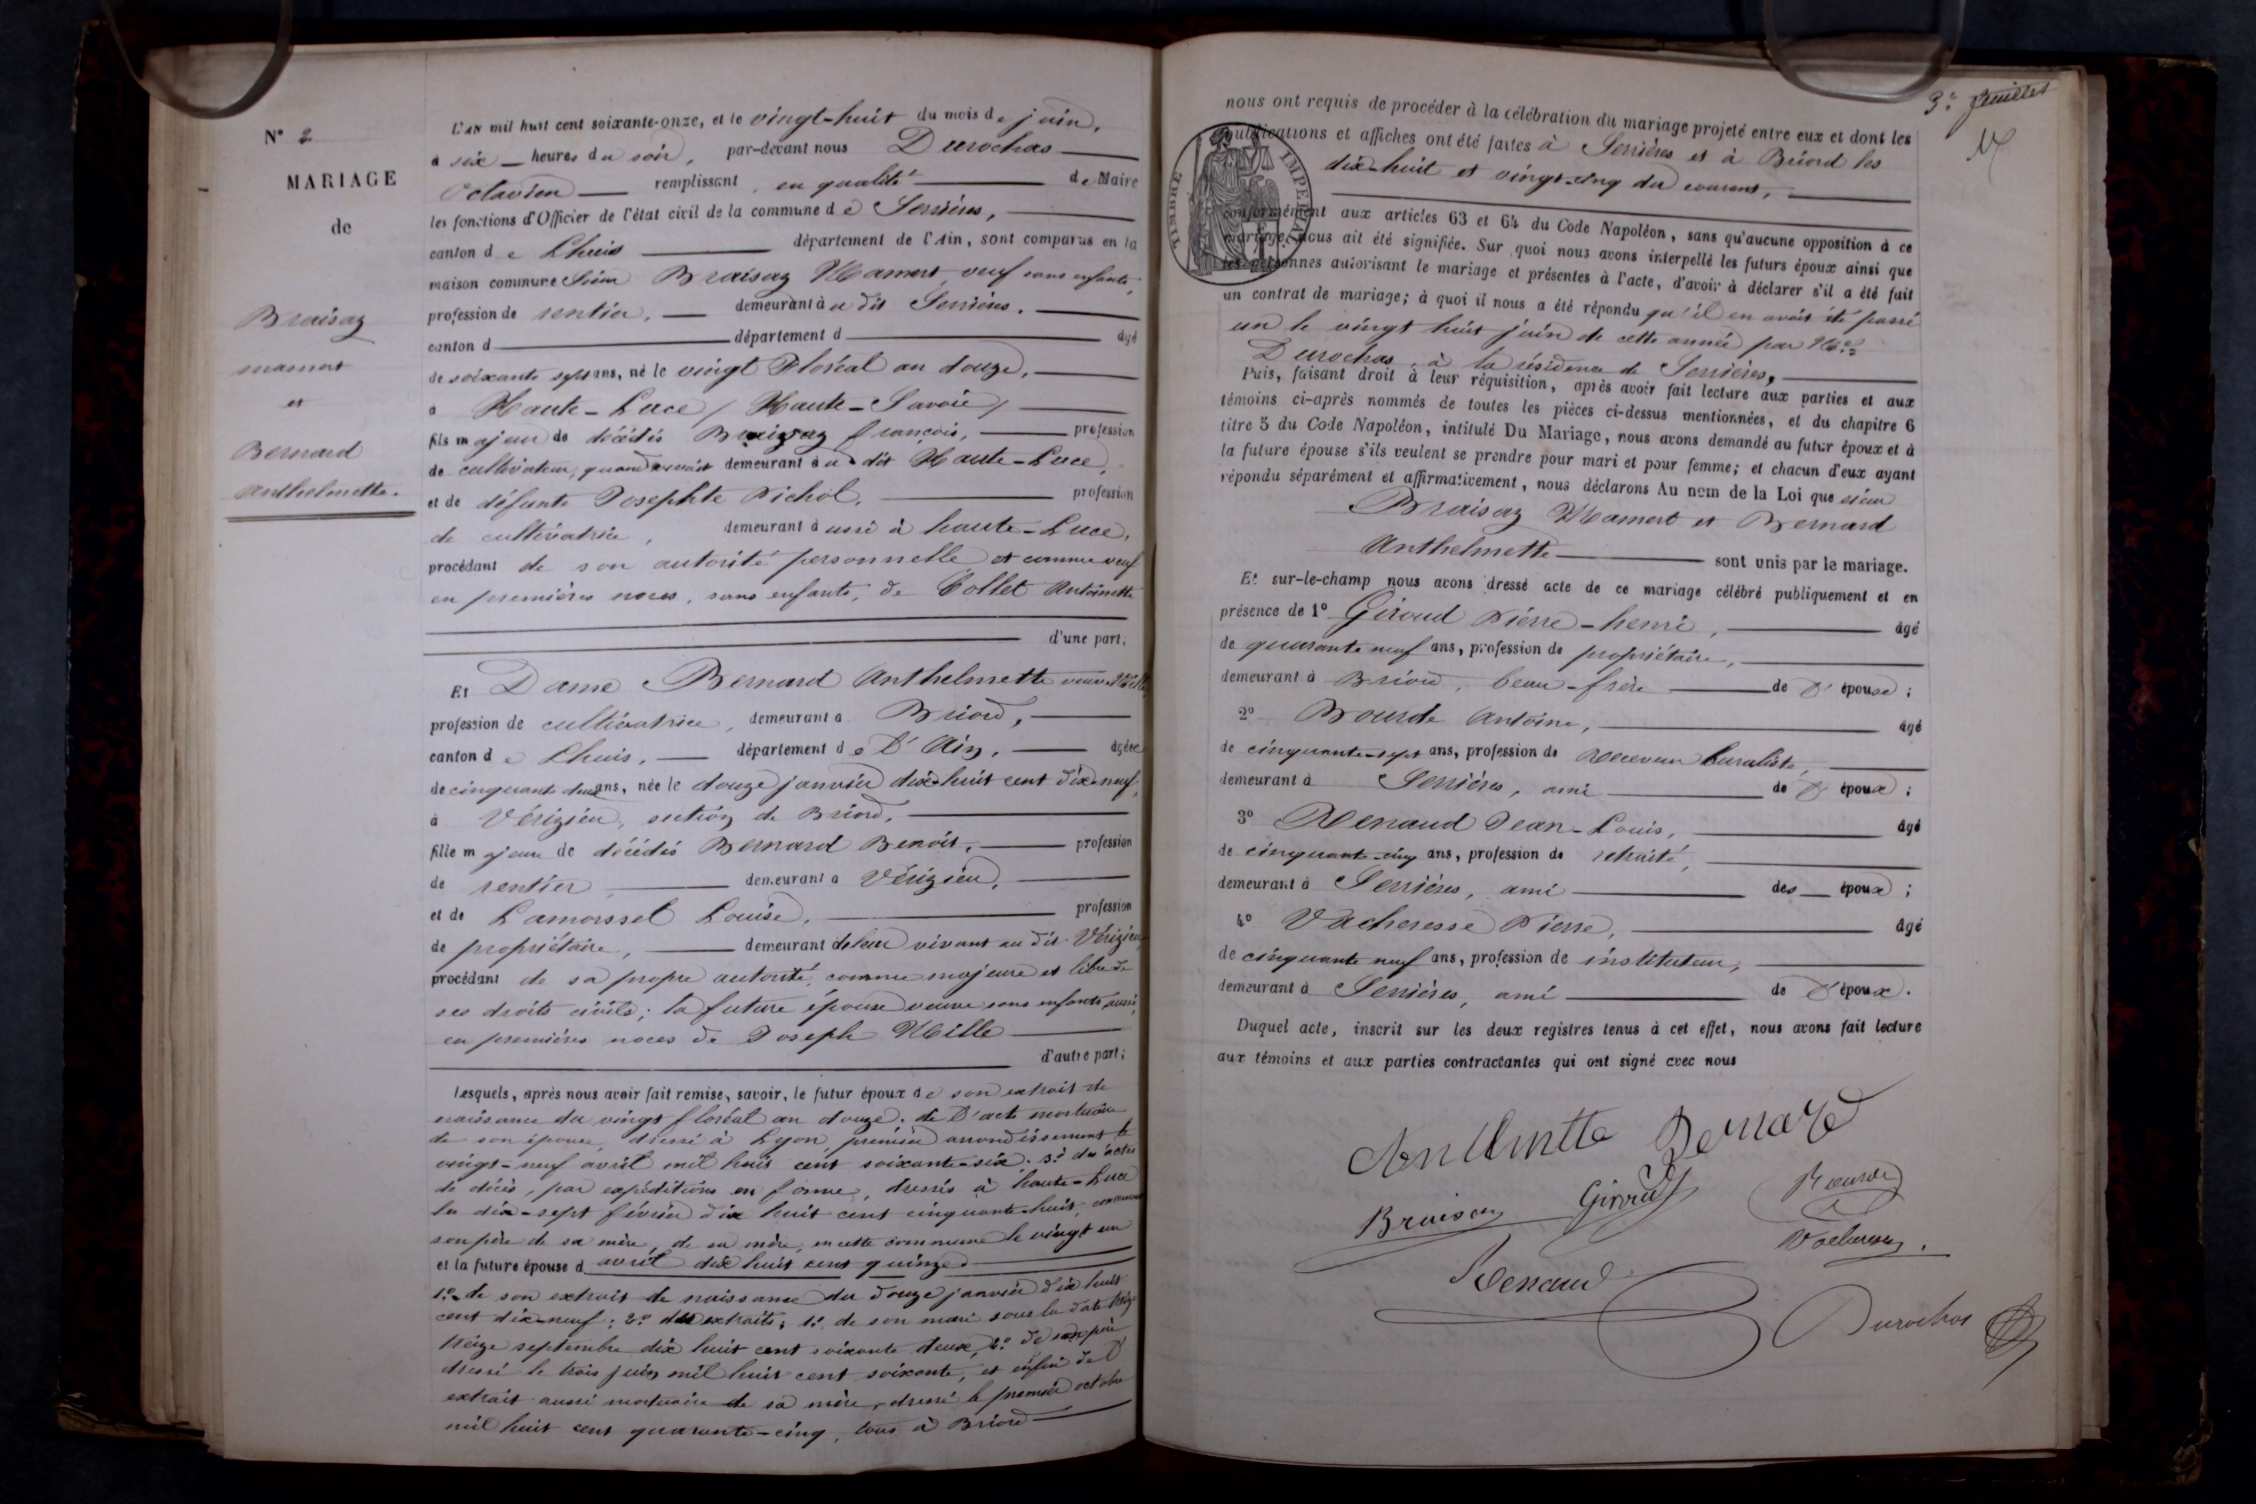 N° 2
MARIAGE
de
Braisaz
mamert
et
Bernard
Anthelmette.
L'AN mil huit cent soixante-onze, et le vingt-huit du mois de juin,
à six heures du soir, par-devant nous Durochas
Octavien remplissant, en qualité de Maire
les fonctions d'Officier de l'état civil de la commune de Serrières,
canton de Lhuis département de l'Ain, sont comparus en la
maison commune Sieur Braisaz Mamert, veuf sans enfants,
profession de rentier, demeurant à u dit Serrières.
canton d département d âgé
de soixante sept ans, né le vingt Floréal an douze,
à Haute-Luce / Haute-Savoie /
fils majeur de décédés Braisaz françois, profession
de cultivateur, quand vivait demeurant à u dit Haute-Luce,
et de défunte Josephte Pichol, profession
de cultivatrice, demeurant à ussi à haute-Luce,
procédant de son autorité personnelle et comme veuf
en premières noces, sans enfants, de Collet Antoinette
d'une part;
Et Dame Bernard Anthelmette veuve Mille
profession de cultivatrice, demeurant à Briord,
canton de Lhuis, département de L'Ain, âgée
de cinquante deux ans, née le douze janvier dix-huit cent dix-neuf,
à Vérizieu, section de Briord,
fille majeure de décédés Bernard Benoit, profession
de rentier demeurant à Vérizieu,
et de Lamorssel Louise, profession
de propriétaire, demeurant de leur vivant au dit Vérizieu
procédant de sa propre autorité, comme majeure et libre de
ses droits civils; la future épouse veuve sans enfants, aussi,
en premières noces de Joseph Mille
d'autre part;
Lesquels, après nous avoir fait remise, savoir, le futur époux de son extrait de
naissance du vingt floréal an douze; de L'acte mortuaire
de son épouse dressé à Lyon, premier arrondissement le
vingt-neuf avril mil huit cent soixante-six. 3° des actes
de décès, par expéditions en forme, dressés à haute-Luce
les dix-sept février dix huit cent cinquante-huit,
son père de sa mère, de sa mère, en cette commune le vingt un
et la future épouse d avril dix huit cent quinze
1° de son extrait de naissance du douze janvier dix huit
cent dix-neuf; 2° des extraits; 1° de son mari sous la date
treize septembre dix huit cent soixante deux, 2° de son père
dressé le trois juin mil huit cent soixante, et enfin de L'
extrait aussi mortuaire de sa mère, dressé le premier octobre
mil huit cent quarante-cinq, tous à Briord
3e feuillet
nous ont requis de procéder à la célébration du mariage projeté entre eux et dont les
publications et affiches ont été faites à Serrières et à Briord les
dix-huit et vingt-cinq du courant,
TIMBRE IMPERIAL
conformément aux articles 63 et 64 du Code Napoléon, sans qu'aucune opposition à ce
mariage nous ait été signifiée. Sur quoi nous avons interpellé les futurs époux ainsi que
les personnes autorisant le mariage et présentes à l'acte, d'avoir à déclarer s'il a été fait
un contrat de mariage; à quoi il nous a été répondu qu'il en avait été passé
un le vingt huit juin de cette année par Me
Durochas, à la résidence de Serrières,
Puis, faisant droit à leur réquisition, après avoir fait lecture aux parties et aux
témoins ci-après nommés de toutes les pièces ci-dessus mentionnées, et du chapitre 6
titre 5 du Code Napoléon, intitulé Du Mariage, nous avons demandé au futur époux et à
la future épouse s'ils veulent se prendre pour mari et pour femme; et chacun d'eux ayant
répondu séparément et affirmativement, nous déclarons Au nom de la Loi que sieur
Braisaz Mamert et Bernard
Anthelmette sont unis par le mariage.
Et sur-le-champ nous avons dressé acte de ce mariage célébré publiquement et en
présence de 1° Giroud Pierre-henri, âgé
de quarante neuf ans, profession de propriétaire,
demeurant à Briord, beau-frère de L' épouse;
2° Bourde Antoine, âgé
de cinquante-sept ans, profession de Receveur buraliste,
demeurant à Serrières, ami de L' époux;
3° Renaud Jean-Louis, âgé
de cinquante-cinq ans, profession de retraité,
demeurant à Serrières, ami des époux;
4° Vacheresse Pierre, âgé
de cinquante neuf ans, profession de instituteur,
demeurant à Serrières, ami de L'époux.
Duquel acte, inscrit sur les deux registres tenus à cet effet, nous avons fait lecture
aux témoins et aux parties contractantes qui ont signé avec nous
Anthelmette Bernard
Braisaz Giroud Bourde
Vacheresse.
Renaud
Durochas